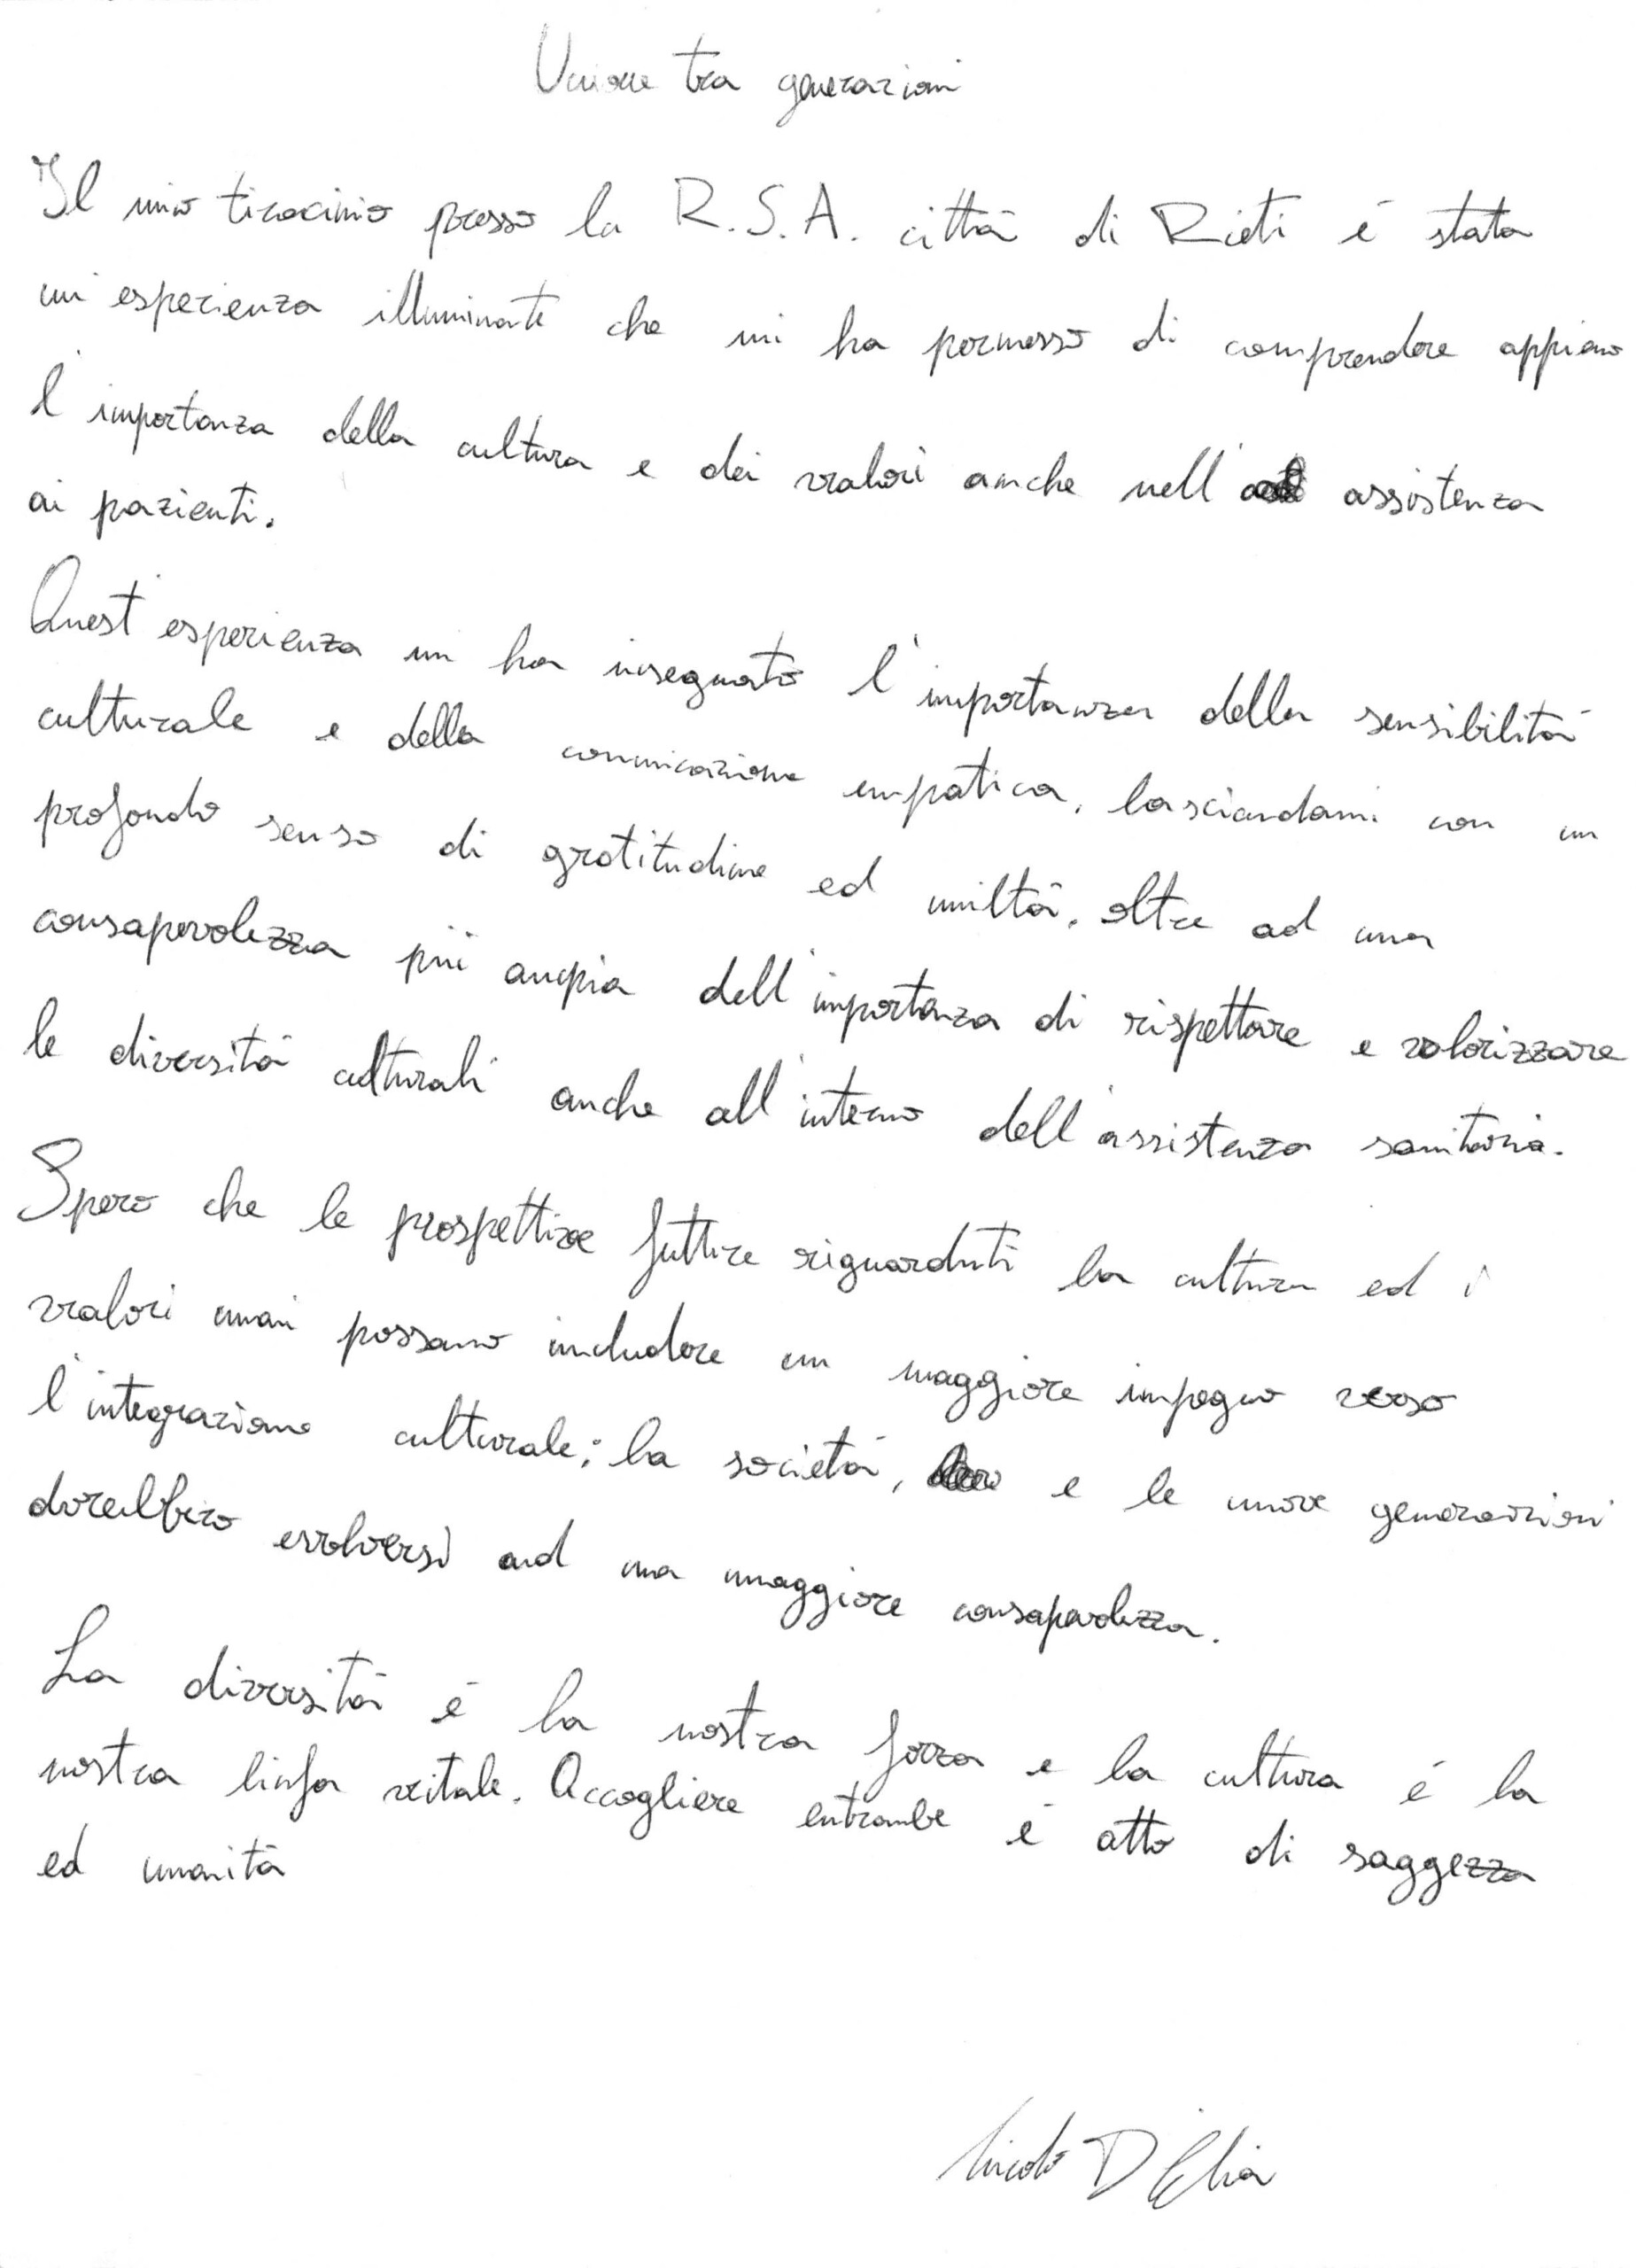 Unione tra generazioni
Il mio tirocinio presso la R.S.A. città di Rieti è stata
un'esperienza illuminante che mi ha permesso di comprendere appieno
l'importanza della cultura e dei valori anche nell'assistenza
ai pazienti.
Quest'esperienza mi ha insegnato l'importanza della sensibilità
culturale e della comunicazione empatica, lasciandomi con un
profondo senso di gratitudine ed umiltà, oltre ad una
consapevolezza più ampia dell'importanza di rispettare e valorizzare
le diversità culturali anche all'interno dell'assistenza sanitaria.
Spero che le prospettive future riguardanti la cultura ed i
valori umani possano includere un maggiore impegno verso
l'integrazione culturale; la società, e le nuove generazioni
dovrebbero evolversi ad una maggiore consapevolezza.
La diversità è la nostra forza e la cultura è la
nostra linfa vitale. Accogliere entrambe è atto di saggezza
ed umanità
Nicolò D'Elia